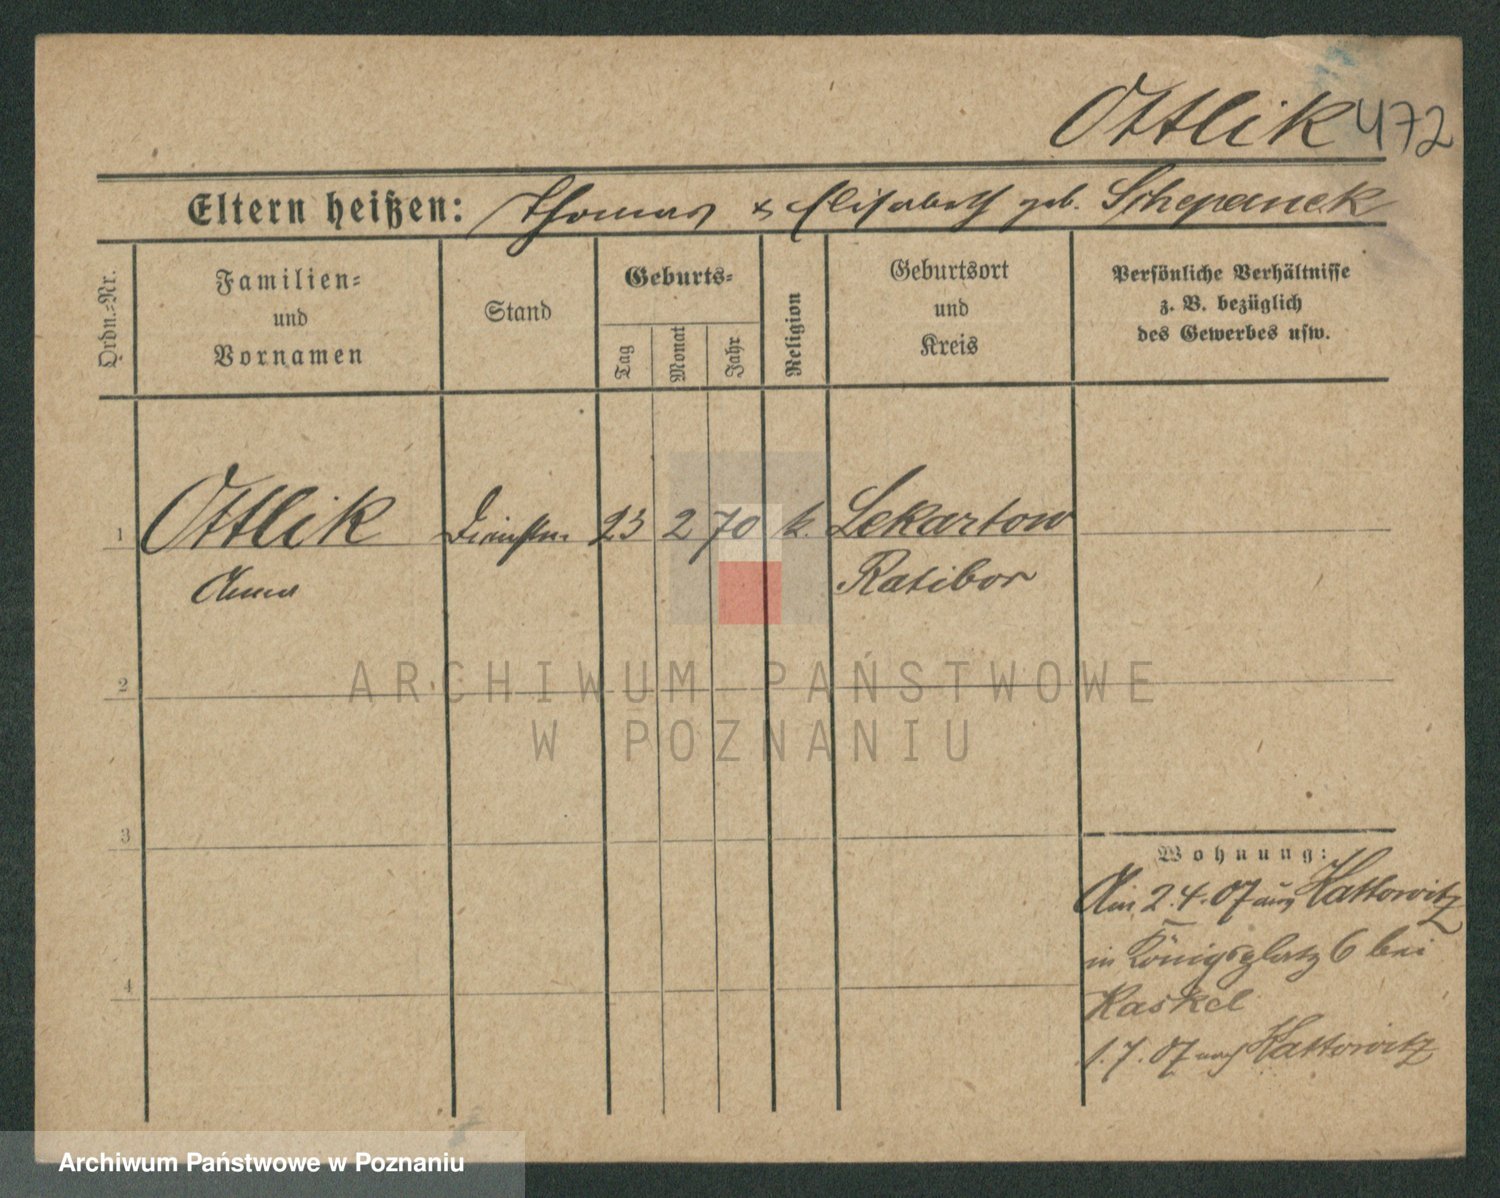 Ottlik 472
Eltern heißen: Thomas & Elisabeth geb. Schepanek
Ordn.-Nr.
Familien-
und
Vornamen
Stand
Geburts-
Tag
Monat
Jahr
Religion
Geburtsort
und
Kreis
Persönliche Verhältnisse
z. B. bezüglich
des Gewerbes usw.
1 Ottlik 23 2 70 k. Lekartow
Anna Ratibor
2
3
4
Wohnung:
Am 2.4.07 aus Kattowitz
in Königsplatz 6 bei
Kaskel
1.7.07 nach Kattowitz
ARCHIWUM PAŃSTWOWE
W POZNANIU
Archiwum Państwowe w Poznaniu